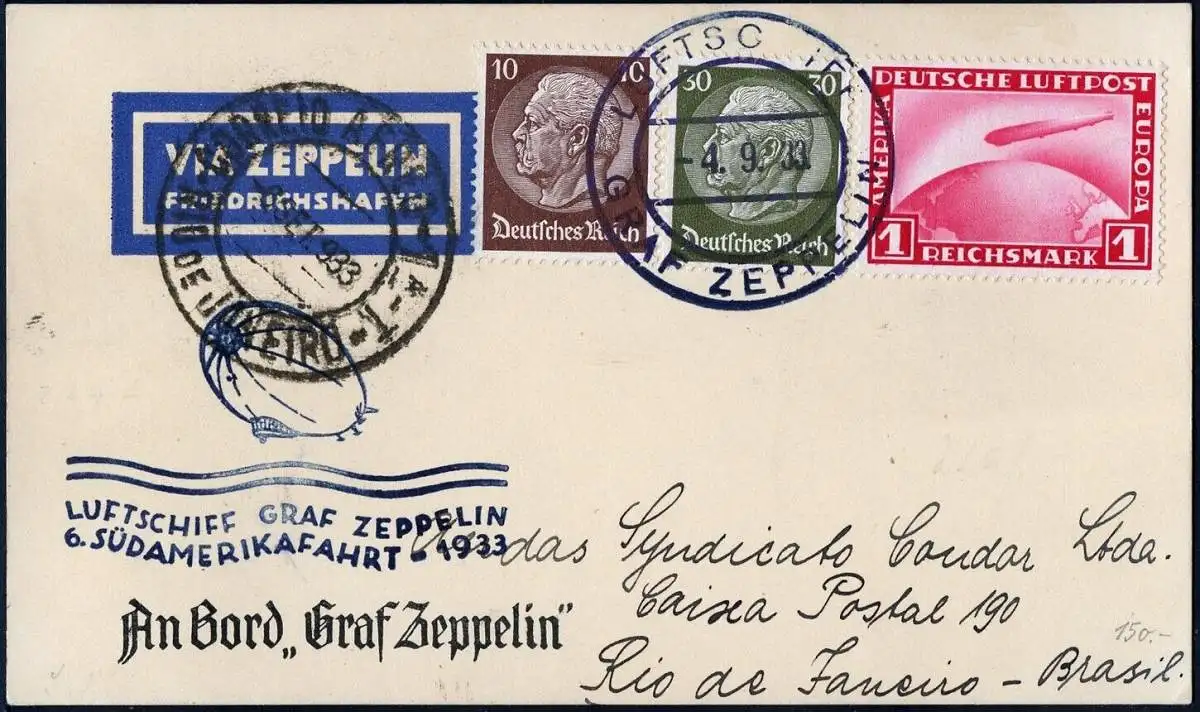 VIA ZEPPELIN
FRIEDRICHSHAFEN
10 10
Deutsches Reich
30 30
Deutsches Reich
LUFTSCHIFF
GRAF ZEPPELIN
-4. 9. 33
DEUTSCHE LUFTPOST
AMERIKA
EUROPA
1 REICHSMARK 1
CORREIO AEREO
SET. 933
RIO DE JANEIRO
LUFTSCHIFF GRAF ZEPPELIN
6. SÜDAMERIKAFAHRT - 1933
An Bord „Graf Zeppelin"
An das Syndicato Condor Ltda.
Caixa Postal 190
Rio de Janeiro - Brasil.
150.-